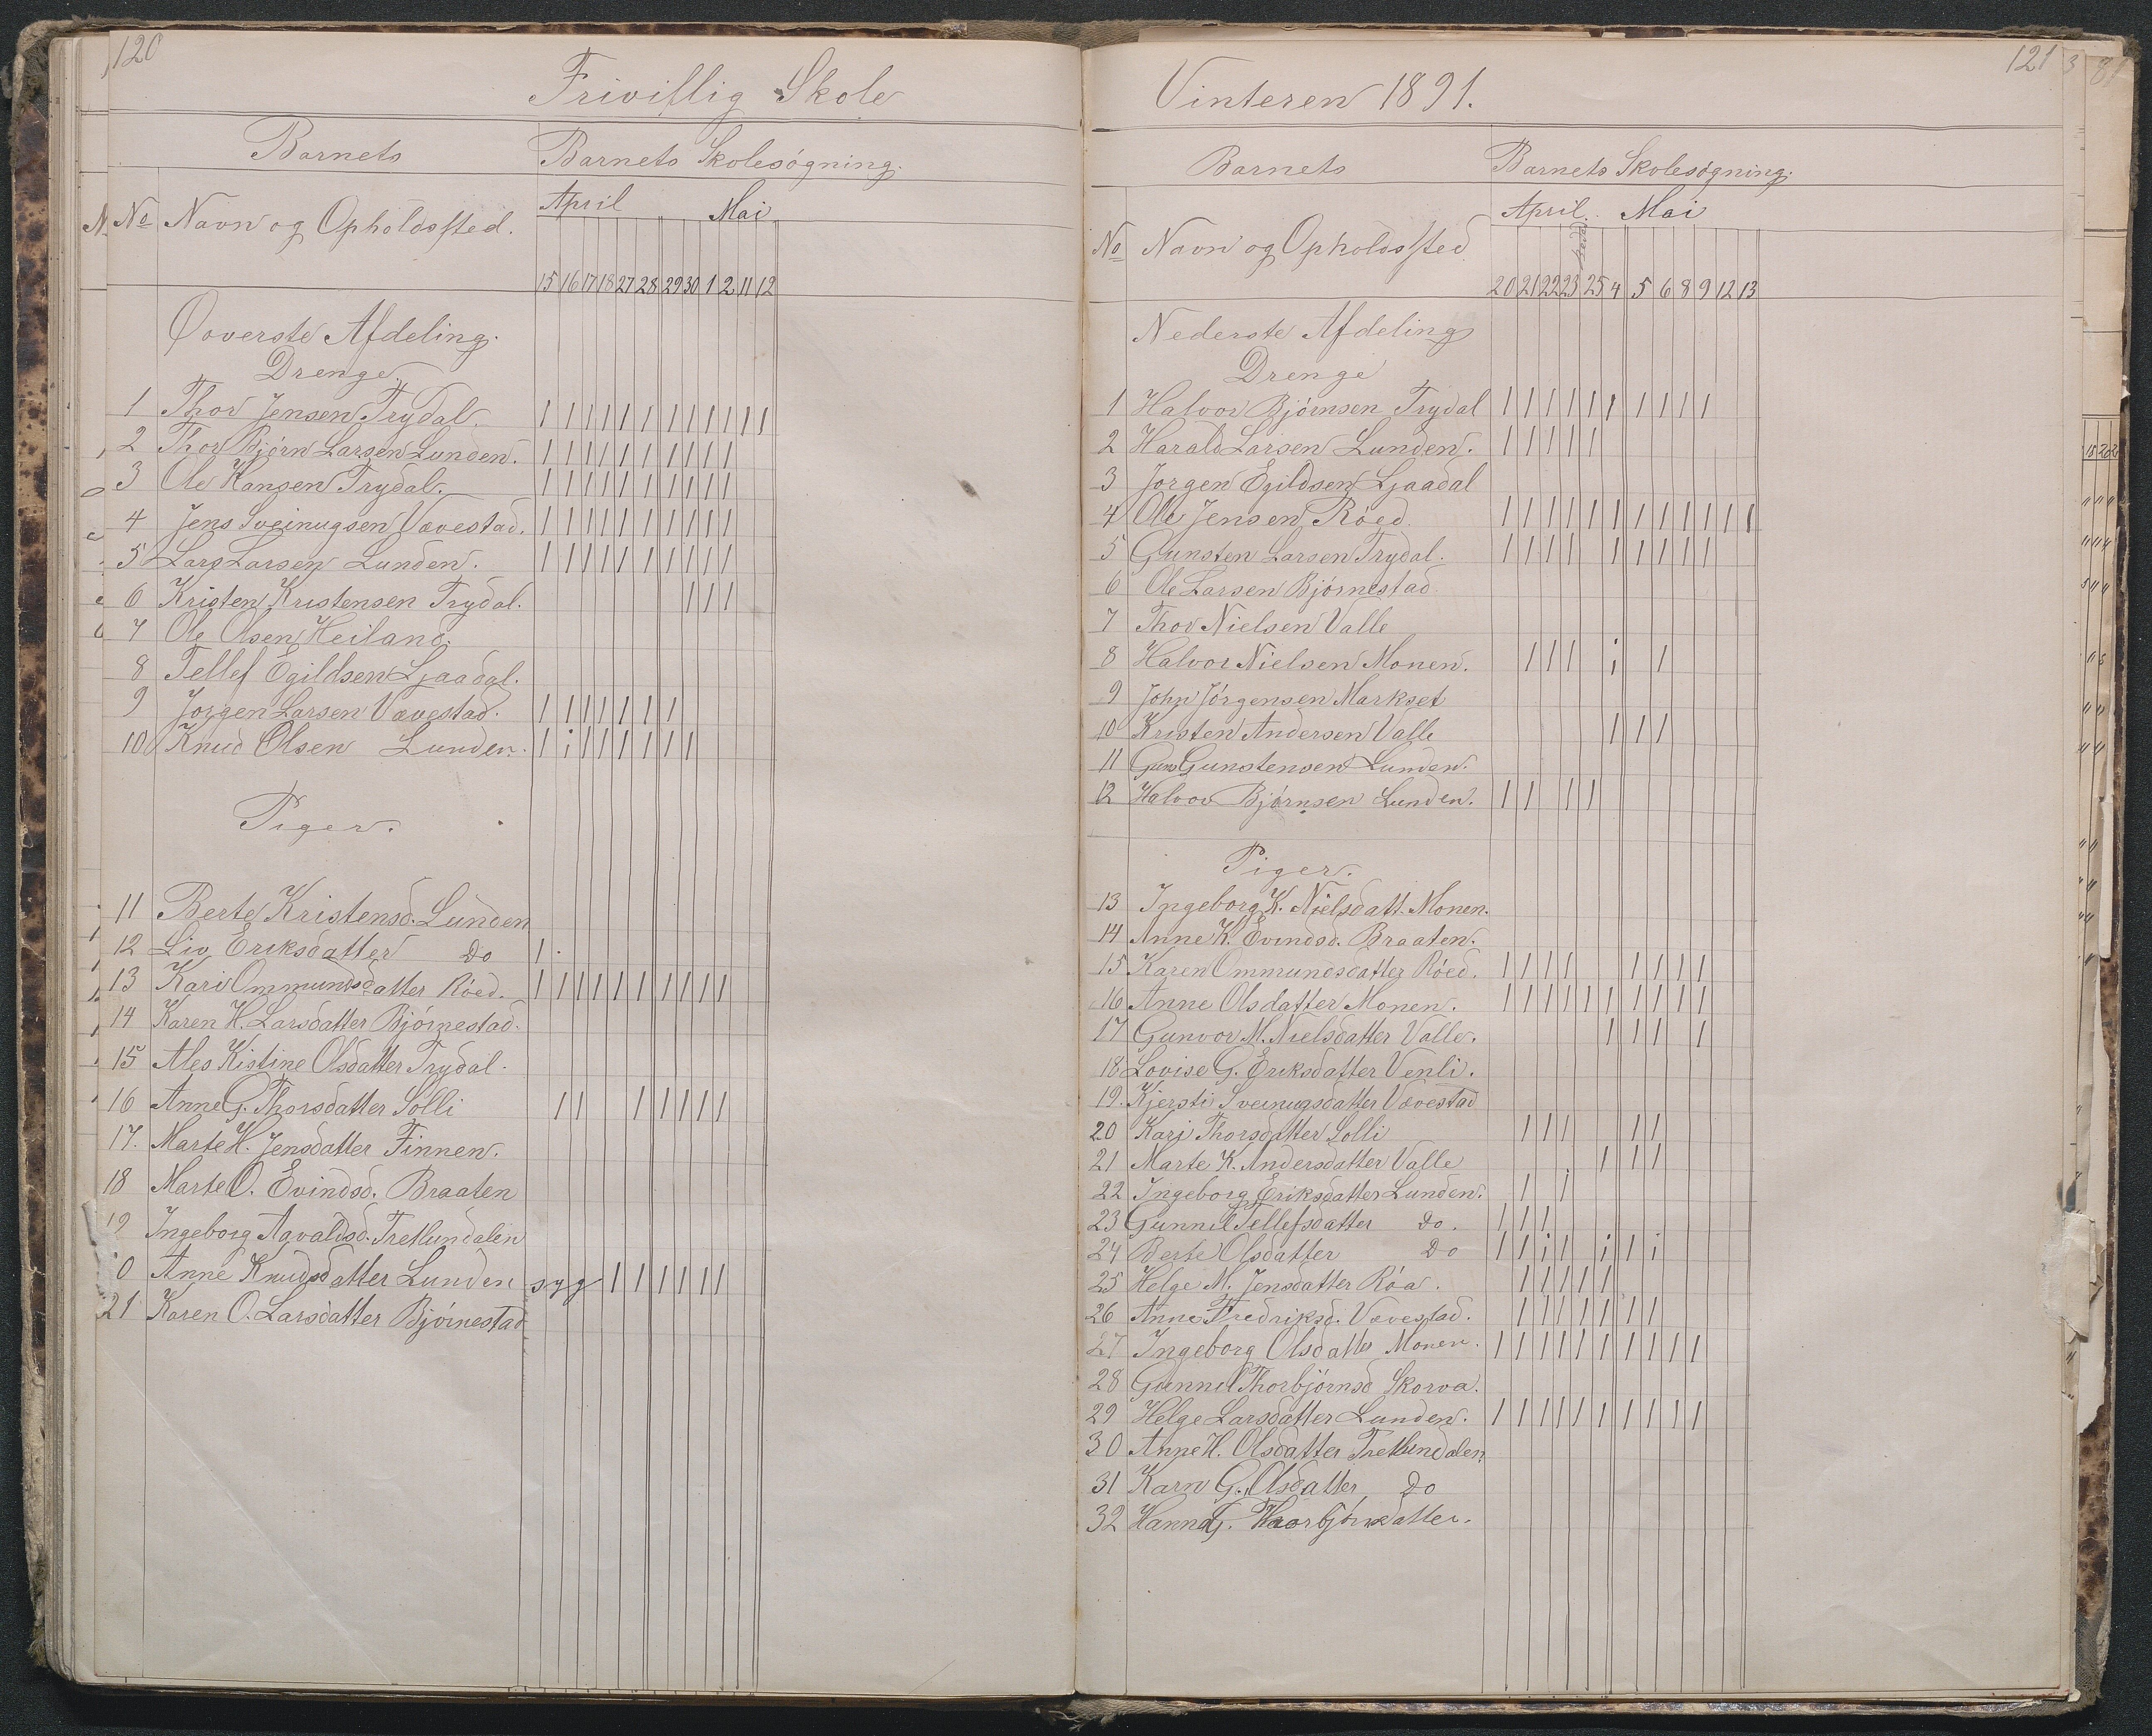 120
Frivillig Skole
Barnets Barnets Skolesøgning.
No Navn og Opholdssted.
April Mai
15 16 17 18 27 28 29 30 1 2 11 12
Øoverste Afdeling.
Drenge.
1 Thor Jensen Trydal. 1 1 1 1 1 1 1 1 1 1 1 1
2 Thor Bjørn Larsen Lunden. 1 1 1 1 1 1 1 1 1 1
3 Ole Hansen Trydal. 1 1 1 1 1 1 1 1 1 1
4 Jens Sveinugsen Vævestad. 1 1 1 1 1 1 1 1 1 1
5 Lars Larsen Lunden. 1 1 1 1 1 1 1 1 1 1
6 Kristen Kristensen Trydal. 1 1 1
7 Ole Olsen Heiland.
8 Tellef Egildsen Ljaadal.
9 Jørgen Larsen Vævestad. 1 1 1 1 1 1 1
10 Knud Olsen Lunden. 1 i 1 1 1 1 1 1
Piger.
11 Berte Kristensd. Lunden
12 Liv Eriksdatter Do 1
13 Kari Ommundsdatter Røed. 1 1 1 1 1 1 1 1 1 1
14 Karen H. Larsdatter Bjørnestad.
15 Ales Kistine Olsdatter Trydal.
16 Anne G. Thorsdatter Solli 1 1 1 1 1 1 1
17. Marte H. Jensdatter Finnen.
18 Marte O. Evindsd. Braaten
19 Ingeborg Aavaldsd. Tretlundalen
0 Anne Knudsdatter Lunden syg 1 1 1 1 1 1
21 Karen O. Larsdatter Bjørnestad
121
Vinteren 1891.
Barnets Barnets Skolesøgning.
No Navn og Opholdssted
April. Mai
20 21 22 23 25 4 5 6 8 9 12 13
Nederste Afdeling
Drenge
1 Halvor Bjørnsen Trydal 1 1 1 1 1 1 1 1 1 1
2 Harald Larsen Lunden. 1 1 1 1 1
3 Jørgen Egildsen Ljaadal
4 Ole Jensen Røed. 1 1 1 1 1 1 1 1 1 1 1 1
5 Gunsten Larsen Trydal. 1 1 1 1 1 1 1 1 1
6 Ole Larsen Bjørnestad.
7 Thor Nielsen Valle
8 Halvor Nielsen Monen. 1 1 1 i 1
9 John Jørgensen Markset
10 Kristen Andersen Valle 1 1 1
11 Guns Gunstensen Lunden.
12 Halvor Bjørnsen Lunden. 1 1 1 1
Piger.
13 Ingeborg K. Nielsdatt. Monen.
14 Anne K. Evindsd. Braaten.
15 Karen Ommundsdatter Røed. 1 1 1 1 1 1 1 1
16 Anne Olsdatter Monen. 1 1 1 1 1 1 1 1 1 1
17 Gunvor M. Nielsdatter Valle. 1 1 1 1
18 Lovise G. Eriksdatter Venli.
19. Kjersti Sveinugsdatter Vævestad
20 Kari Thorsdatter Solli 1 1 1 1 1
21 Marte K. Andersdatter Valle 1 1 1
22 Ingeborg Eriksdatter Lunden. 1 1
23 Gunnil Tellefsdatter Do. 1 1 1
24 Berte Olsdatter Do 1 1 i 1 i 1 i
25 Helge M. Jensdatter Røa. 1 1 1 1 1
26 Anne Fredriksd. Vævestad. 1 1 1 1 1 1 1
27 Ingeborg Olsdatter Monen. 1 1 1 1 1 1 1 1 1 1
28 Gunnil Thorbjørnsd Skorva.
29 Helge Larsdatter Lunden. 1 1 1 1 1 1 1 1 1 1
30 Anne H. Olsdatter Tretlundalen
31 Karn G. Olsdatter Do
32 Hanna G. Thorbjørnsdatter.